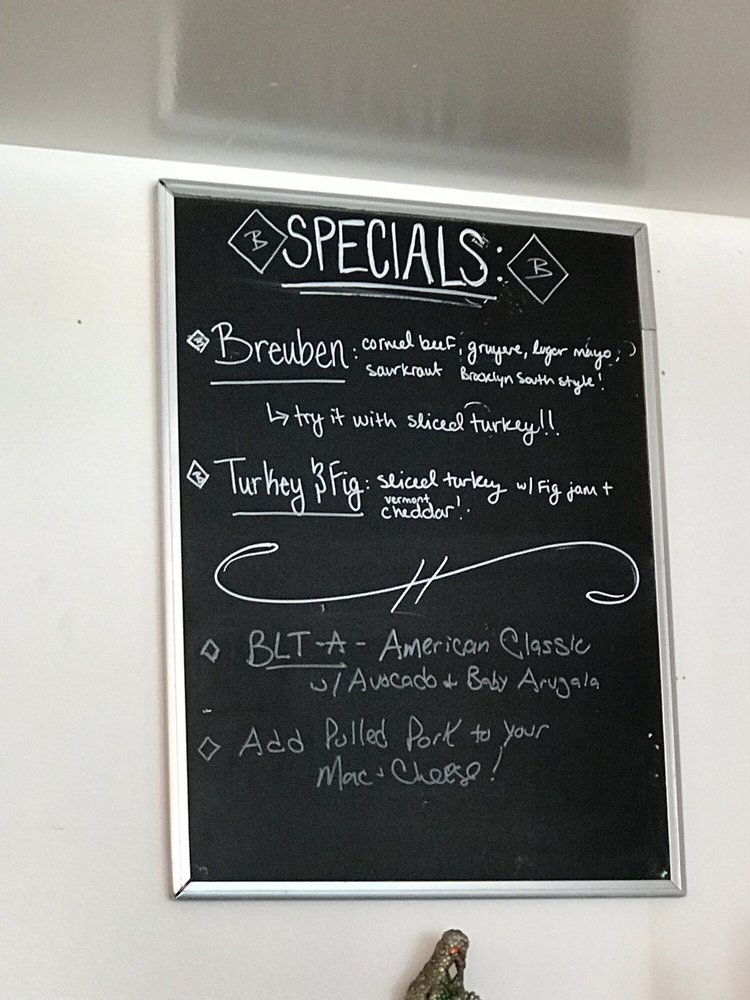 B SPECIALS: B
B Breuben: corned beef, gruyere, luger mayo,
saurkraut Brooklyn South style!
↳ try it with sliced turkey!!
B Turkey & Fig: sliced turkey w/ Fig jam +
vermont
cheddar!
BLT-A - American Classic
w/ Avocado + Baby Arugala
Add Pulled Pork to your
Mac + Cheese!